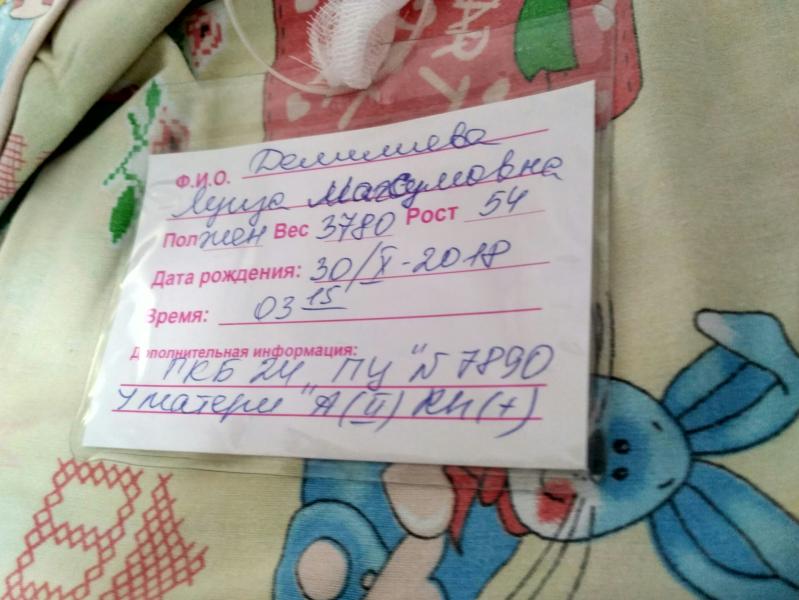 Ф.И.О. Демишева
Луиза Максумовна
Пол жен Вес 3780 Рост 54
Дата рождения: 30/X-2018
Время: 03 15
Дополнительная информация:
ГКБ 24 ПЦ "N 7890
У матери "A(II) RH(+)